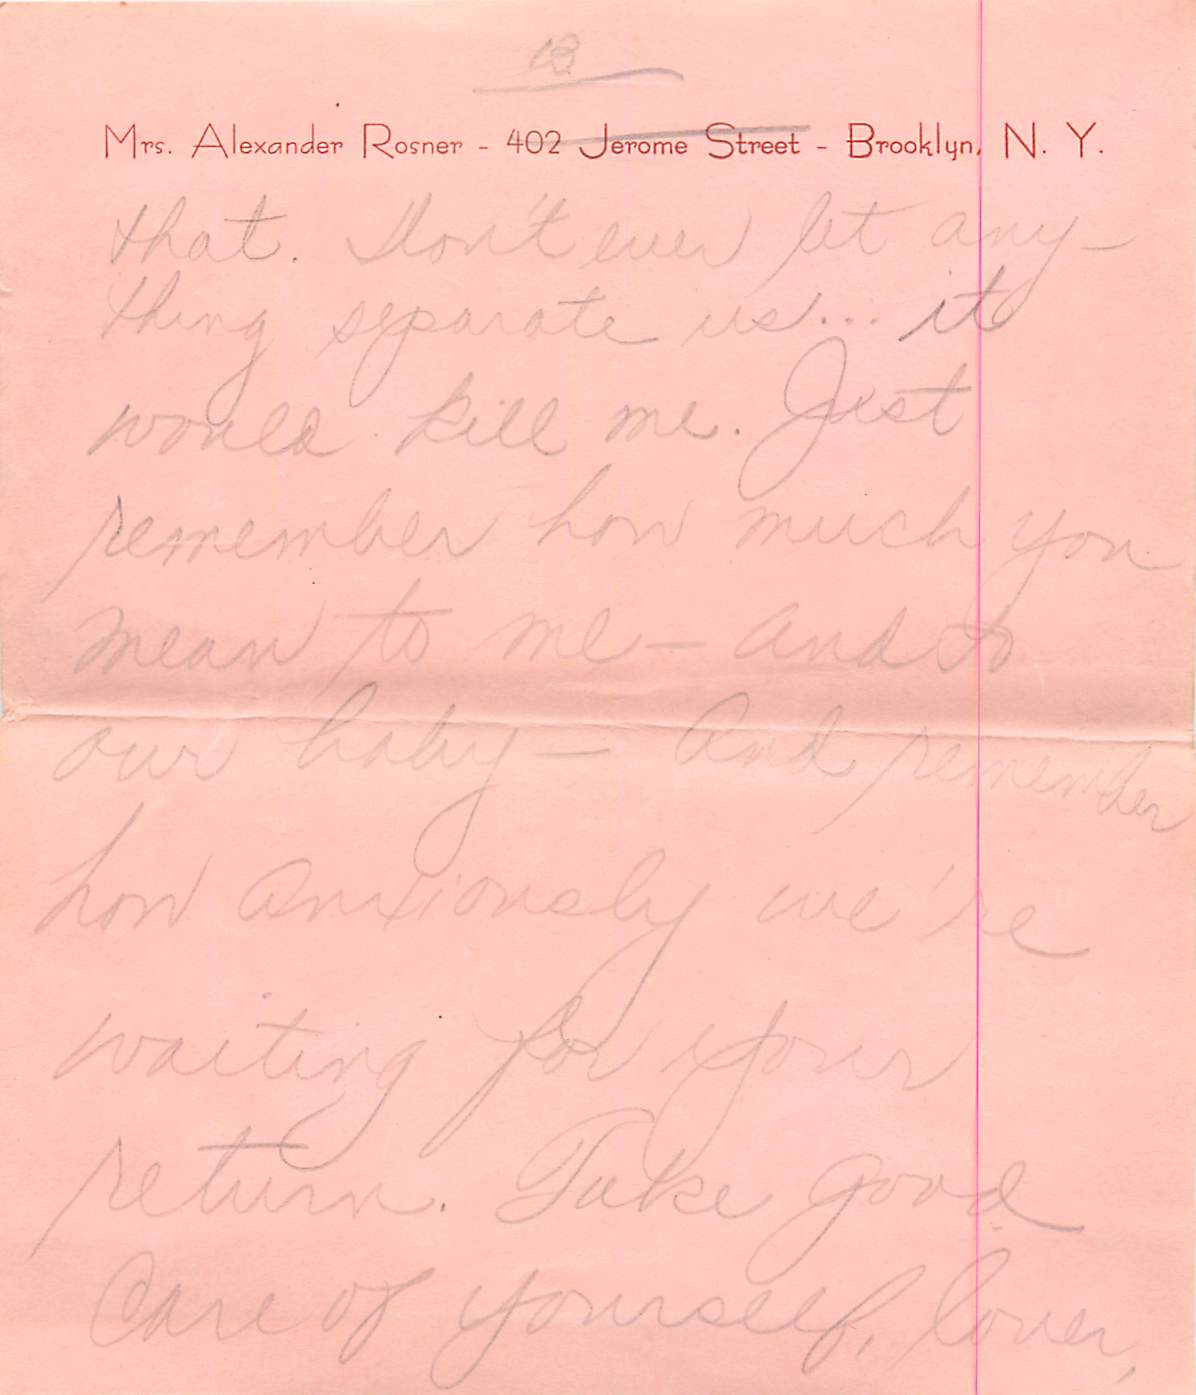 13
Mrs. Alexander Rosner - 402 Jerome Street - Brooklyn, N. Y.
that. Don't ever let any-
thing separate us... it
would kill me. Just
remember how much you
mean to me - and to
our baby - And remember
how anxiously we're
waiting for your
return. Take good
care of yourself, lover,